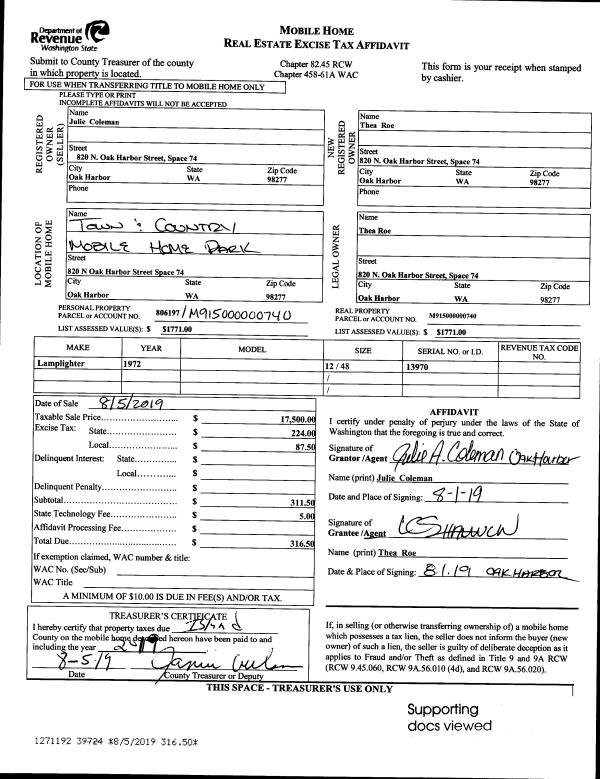 Department of
Revenue
Washington State
MOBILE HOME
REAL ESTATE EXCISE TAX AFFIDAVIT
Submit to County Treasurer of the county
in which property is located.
Chapter 82.45 RCW
Chapter 458-61A WAC
This form is your receipt when stamped
by cashier.
FOR USE WHEN TRANSFERRING TITLE TO MOBILE HOME ONLY
PLEASE TYPE OR PRINT
INCOMPLETE AFFIDAVITS WILL NOT BE ACCEPTED
REGISTERED
OWNER
(SELLER)
Name
Julie Coleman
Street
820 N. Oak Harbor Street, Space 74
City State Zip Code
Oak Harbor WA 98277
Phone
NEW
REGISTERED
OWNER
Name
Thea Roe
Street
820 N. Oak Harbor Street, Space 74
City State Zip Code
Oak Harbor WA 98277
Phone
LOCATION OF
MOBILE HOME
Name
TOWN & COUNTRY
MOBILE HOME PARK
Street
820 N Oak Harbor Street Space 74
City State Zip Code
Oak Harbor WA 98277
LEGAL OWNER
Name
Thea Roe
Street
820 N. Oak Harbor Street, Space 74
City State Zip Code
Oak Harbor WA 98277
PERSONAL PROPERTY
PARCEL or ACCOUNT NO. 806197 / M915000000740
LIST ASSESSED VALUE(S): $ $1771.00
REAL PROPERTY
PARCEL or ACCOUNT NO. M915000000740
LIST ASSESSED VALUE(S): $ $1771.00
MAKE YEAR MODEL SIZE SERIAL NO. or I.D. REVENUE TAX CODE NO.
Lamplighter 1972 12 / 48 13970
/
/
Date of Sale 8/5/2019
Taxable Sale Price $ 17,500.00
Excise Tax: State $ 224.00
Local $ 87.50
Delinquent Interest: State $
Local $
Delinquent Penalty $
Subtotal $ 311.50
State Technology Fee $ 5.00
Affidavit Processing Fee $
Total Due $ 316.50
If exemption claimed, WAC number & title:
WAC No. (Sec/Sub)
WAC Title
A MINIMUM OF $10.00 IS DUE IN FEE(S) AND/OR TAX.
AFFIDAVIT
I certify under penalty of perjury under the laws of the State of
Washington that the foregoing is true and correct.
Signature of
Grantor /Agent Julie A. Coleman Oak Harbor
Name (print) Julie Coleman
Date and Place of Signing: 8-1-19
Signature of
Grantee /Agent
Name (print) Thea Roe
Date & Place of Signing: 8.1.19 OAK HARBOR
TREASURER'S CERTIFICATE
I hereby certify that property taxes due Island
County on the mobile home described hereon have been paid to and
including the year 2019
8-5-19
Date County Treasurer or Deputy
If, in selling (or otherwise transferring ownership of) a mobile home
which possesses a tax lien, the seller does not inform the buyer (new
owner) of such a lien, the seller is guilty of deliberate deception as it
applies to Fraud and/or Theft as defined in Title 9 and 9A RCW
(RCW 9.45.060, RCW 9A.56.010 (4d), and RCW 9A.56.020).
THIS SPACE - TREASURER'S USE ONLY
Supporting
docs viewed
1271192 39724 *8/5/2019 316.50*